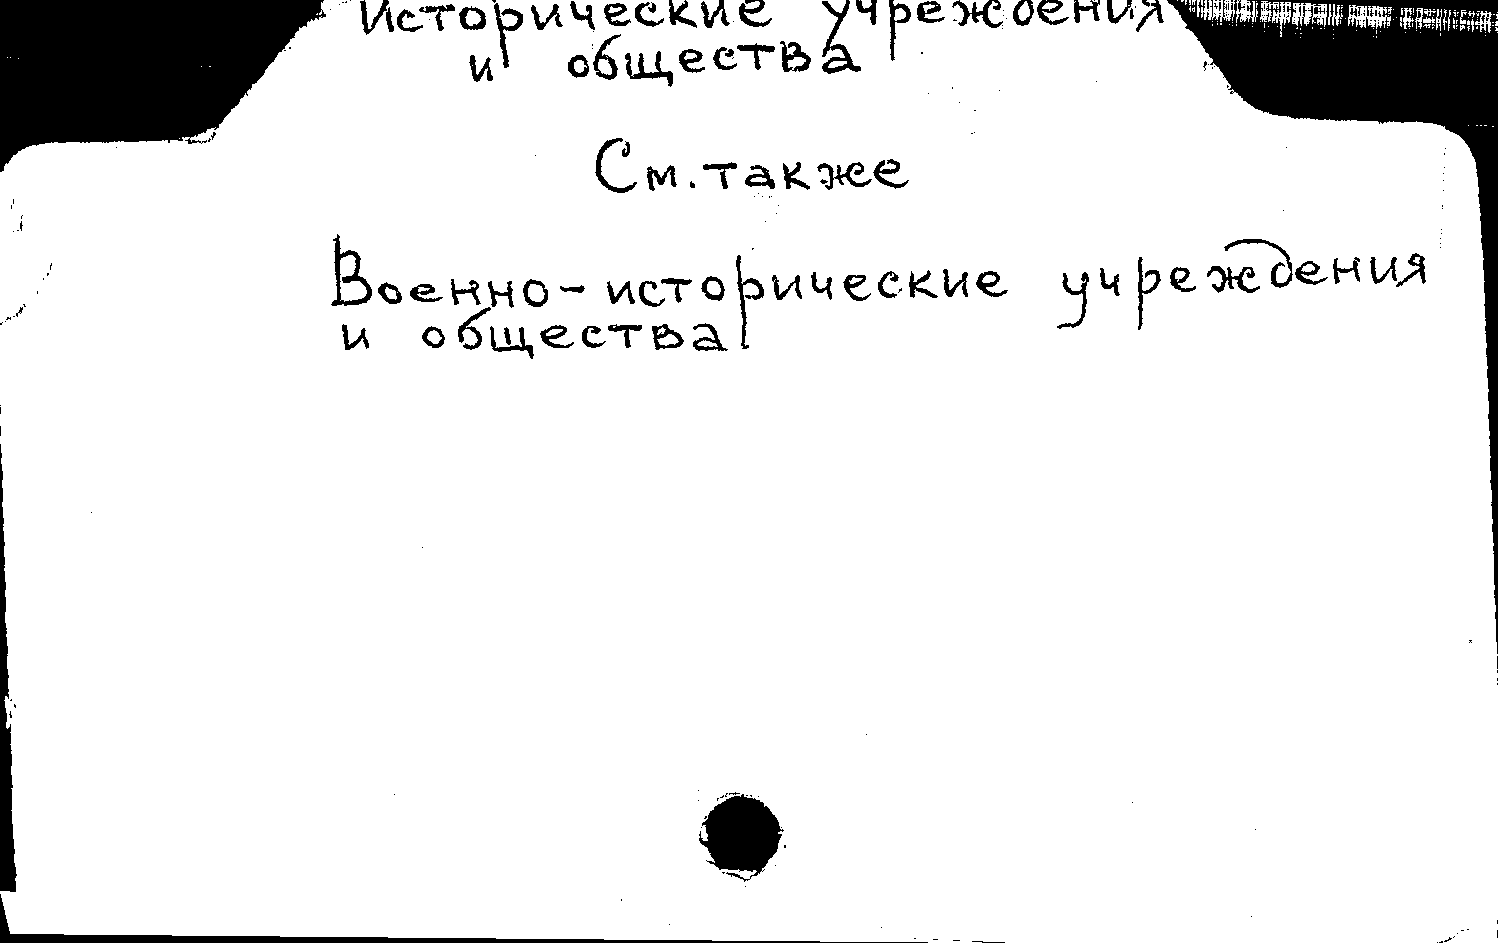 Исторические учреждения
и общества
См. также
Военно-исторические учреждения
и общества